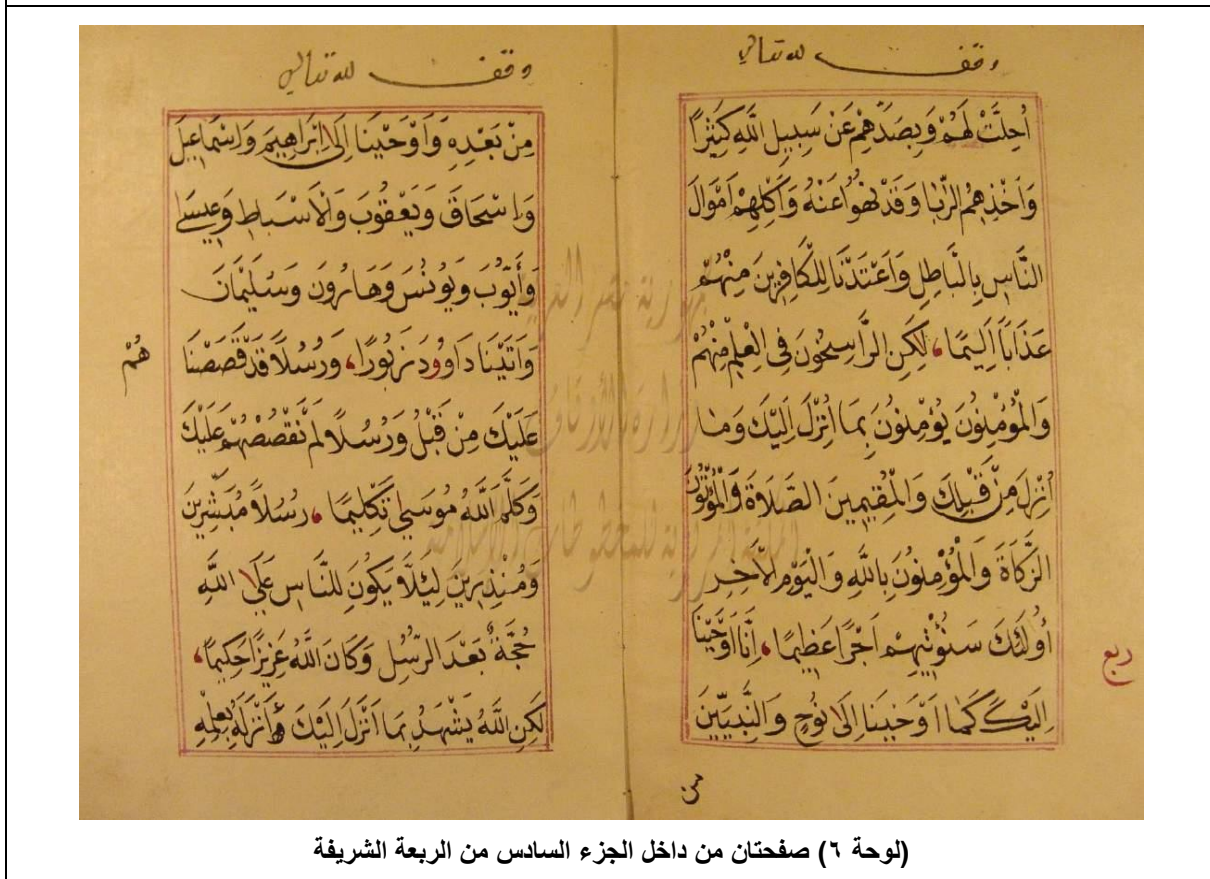 وقف لله تعالى
اُحِلَّتْ لَهُمْ وَبِصَدِّهِمْ عَنْ سَبِيلِ اللَّهِ كَثِيرًا
وَاَخْذِهِمُ الرِّبٰا وَقَدْ نُهُوا عَنْهُ وَاَكْلِهِمْ اَمْوَالَ
النَّاسِ بِالْبَاطِلِ وَاَعْتَدْنَا لِلْكَافِرِينَ مِنْهُمْ
عَذَابًا اَلِيمًا، لٰكِنِ الرَّاسِخُونَ فِى الْعِلْمِ مِنْهُمْ
وَالْمُؤْمِنُونَ يُؤْمِنُونَ بِمَا اُنْزِلَ اِلَيْكَ وَمٰا
اُنْزِلَ مِنْ قَبْلِكَ وَالْمُقِيمِينَ الصَّلَاةَ وَالْمُؤْتُونَ
الزَّكَاةَ وَالْمُؤْمِنُونَ بِاللَّهِ وَالْيَوْمِ الْآخِرِ
اُولٰئِكَ سَنُؤْتِيهِمْ اَجْرًا عَظِيمًا، اِنَّا اَوْحَيْنَا
ربع
اِلَيْكَ كَمٰا اَوْحَيْنَا اِلَى نُوحٍ وَالنَّبِيِّينَ
من
وقف لله تعالى
مِنْ بَعْدِهِ وَاَوْحَيْنَا اِلَى اِبْرَاهِيمَ وَاِسْمَاعِيلَ
وَاِسْحَاقَ وَيَعْقُوبَ وَالْاَسْبَاطِ وَعِيسَى
وَأَيُّوبَ وَيُونُسَ وَهَارُونَ وَسُلَيْمَانَ
وَاٰتَيْنَا دَاوُودَ زَبُورًا، وَرُسُلاً قَدْ قَصَصْنَا
هُمْ
عَلَيْكَ مِنْ قَبْلُ وَرُسُلًا لَمْ نَقْصُصْهُمْ عَلَيْكَ
وَكَلَّمَ اللَّهُ مُوسَى تَكْلِيمًا، رُسُلاً مُبَشِّرِينَ
وَمُنْذِرِينَ لِئَلَّا يَكُونَ لِلنَّاسِ عَلَى اللَّهِ
حُجَّةٌ بَعْدَ الرُّسُلِ وَكَانَ اللَّهُ عَزِيزًا حَكِيمًا،
لٰكِنِ اللَّهُ يَشْهَدُ بِمَا اَنْزَلَ اِلَيْكَ اَنْزَلَهُ بِعِلْمِهِ
(لوحة ٦) صفحتان من داخل الجزء السادس من الربعة الشريفة